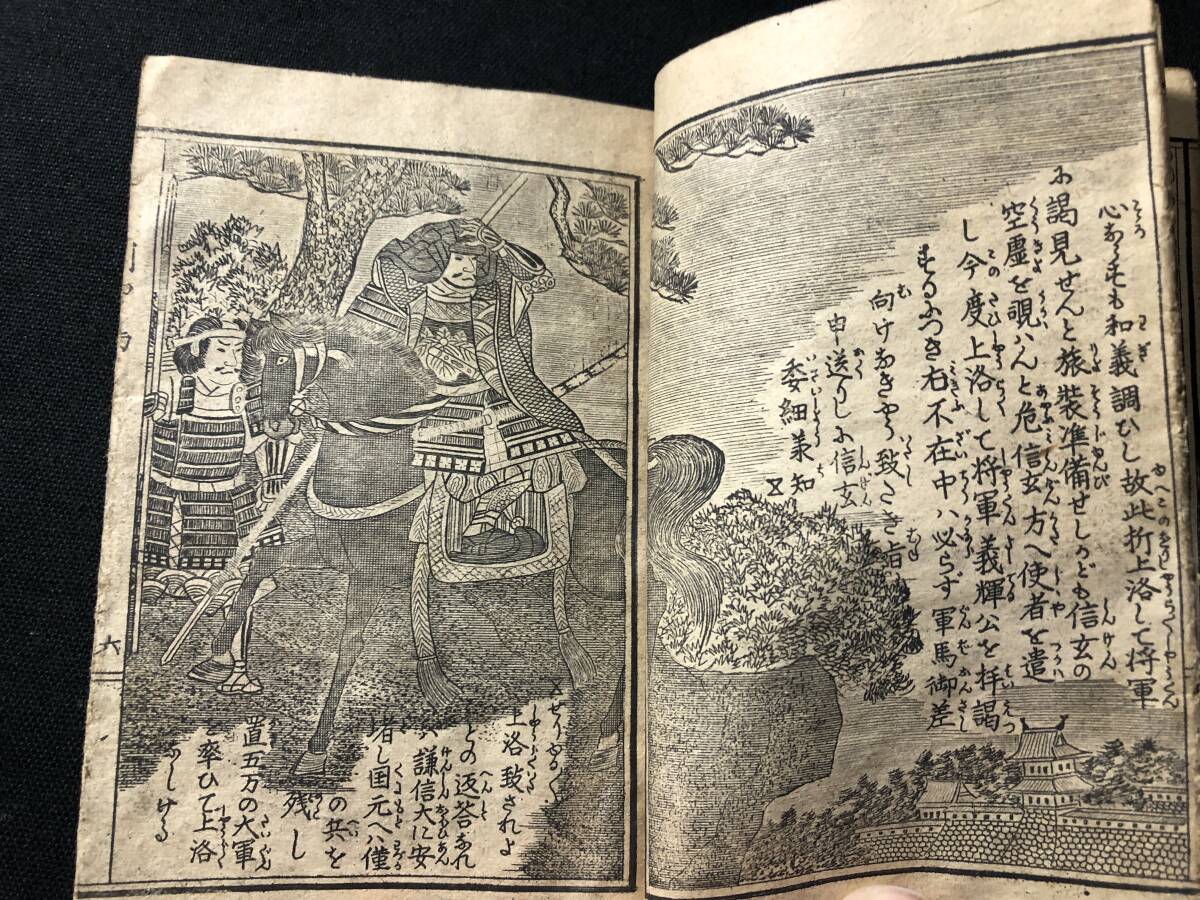 心あらずも和義調ひし故此折上洛して将軍
に謁見せんと旅装準備せしかども信玄の
空虚を覗ハんと危信玄方へ使者を遣
し今度上洛して将軍義輝公を拝謁
するにつき右不在中ハ必らず軍馬御差
向けなきやう致たき旨
申送りしに信玄
委細承知
せり
上洛致されよ
との返答なれ
バ謙信大に安
堵し国元へハ僅
の兵を
残し
置五万の大軍
を率ひて上洛
なしける
六